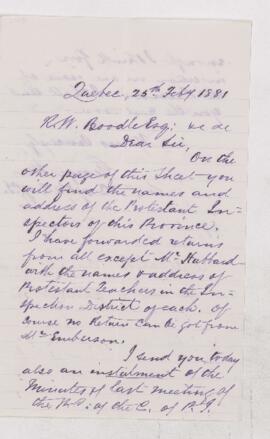 Quebec, 25th Feby 1881
R. W. Boodle Esq: &c &c
Dear Sir,
On the
other page of this Sheet you
will find the names and
address of the Protestant In-
spectors of this Province.
I have forwarded returns
from all except Mr Hubbard
with the names & address of
Protestant Teachers in the In-
spection District of each. Of
course no Return can be got from
Mr Emberson.
I send you today
also an instalment of the
Minutes of last meeting of
the P. C. of the C. of P. I.